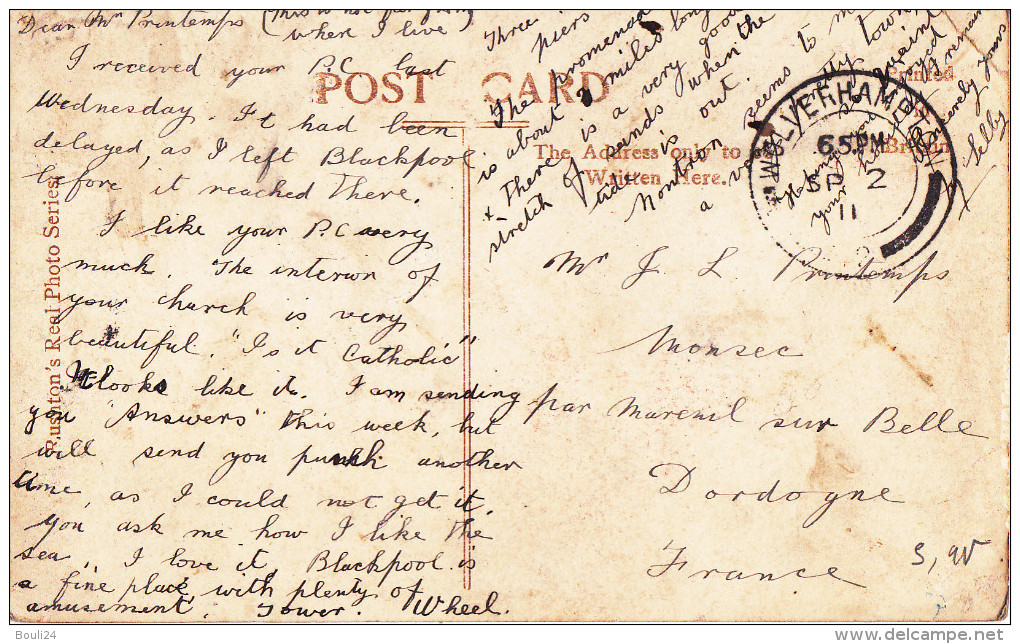 Dear Mr Printemps (This is not
where I live)
I received your P.C last
Wednesday. It had been
delayed, as I left Blackpool
before it reached there.
I like your P.C very
much. The interior of
your church is very
beautiful. "Is it Catholic"
It looks like it. I am sending
you "Answers" this week, but
will send you punch another
time, as I could not get it.
You ask me how I like the
sea, I love it, Blackpool is
a fine place, with plenty of
amusement. Tower. Wheel.
Three
piers
The promenade
is about 3 miles long
+ There is a very good
stretch of sands when the
tide is out.
Nontron seems to me
a very town,
quaint
your
sincerely yours
Selby
POST CARD
The Address only to be
Written Here.
Printed
in
Britain
WOLVERHAMPTON
6 5 PM
SP 2
11
Mr J L Printemps
Monsec
par Mareuil sur Belle
Dordogne
France
3,90
Rushton's Real Photo Series.
Bouli24
www.delcampe.net